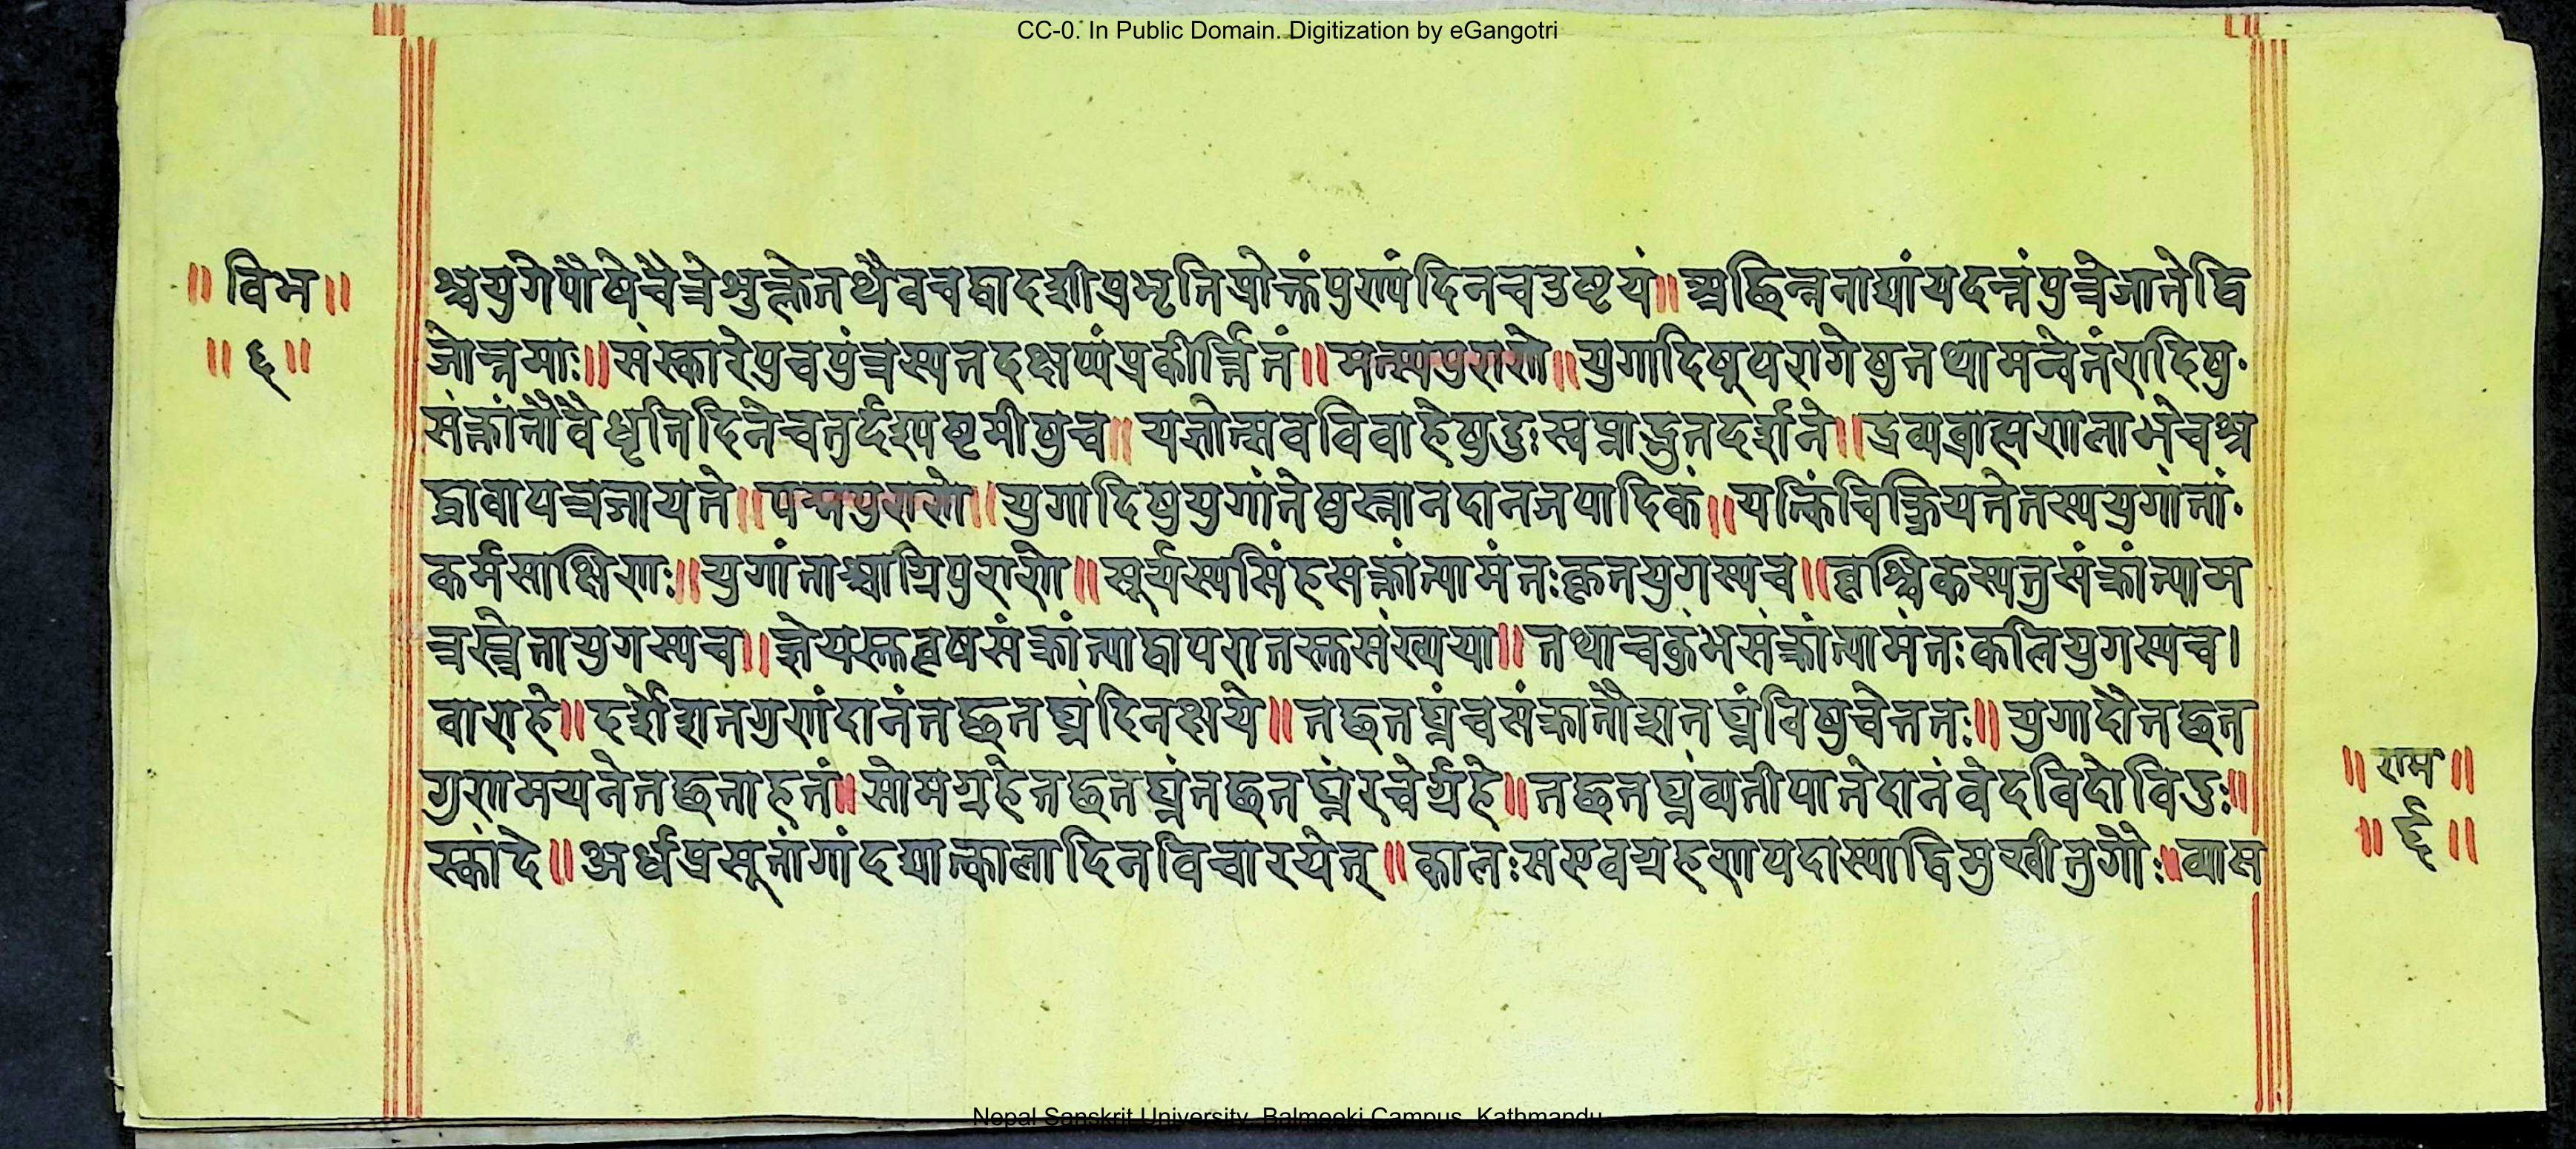 CC-0. In Public Domain. Digitization by eGangotri
॥ विभ ॥
॥ ६ ॥
श्वयुगेपौषेचैत्रेशुक्लेतथैवचद्वादशीप्रभृतिप्रोक्तंपुण्यंदिनचतुष्टयं॥अछिन्ननाद्यांयदत्तंपुत्रेजातेद्वि
जोत्तमाः॥संस्कारेपुचपुंत्रस्यतदक्षय्यंप्रकीर्त्तितं॥मत्स्यपुराणे॥युगादिषूपरागेषुतथामन्वंतरादिषु
संक्रांतौवैधृतिदिनेचतुर्दश्यष्टमीषुच॥यज्ञोत्सवविवाहेषुदुःस्वप्नाद्भुतदर्शने॥द्रव्यब्राह्मणलाभेचश्र
द्धावायत्रजायते॥पद्मपुराणे॥युगादिषुयुगांतेषुस्नानदानजपादिकं॥यत्किंचित्क्रियतेतस्ययुगांतां
कर्मसाक्षिणः॥युगांताश्चाग्निपुराणे॥सूर्यस्यसिंहसक्रांत्यामंतःकृतयुगस्यच॥वृश्चिकस्यतुसंक्रांत्याम
न्तस्त्रेतायुगस्यच॥ज्ञेयस्तुवृषसंक्रांत्याद्वापरांतस्तुसंख्यया॥तथाचकुंभसंक्रांत्यामंतःकलियुगस्यच।
वाराहे॥दर्शेशतगुणंदानंतछतघ्नंदिनक्षये॥तछतघ्नंचसंक्रातौशतघ्नंविषुचेततः॥युगादौतछत
गुणमयनेतछताहतं॥सोमग्रहेतछतघ्नंतछतघ्नंरवेर्ग्रहे॥तछतघ्नंव्यतीपातेदानंवेदविदोविदुः॥
स्कांदे॥अर्धप्रसूतांगांदद्यात्कालादिनविचारयेत्॥कालःसएवग्रहणेयदास्याद्विमुखीतुगौः॥व्यास
॥ राम ॥
॥ ६ ॥
Nepal Sanskrit University, Balmeeki Campus, Kathmandu